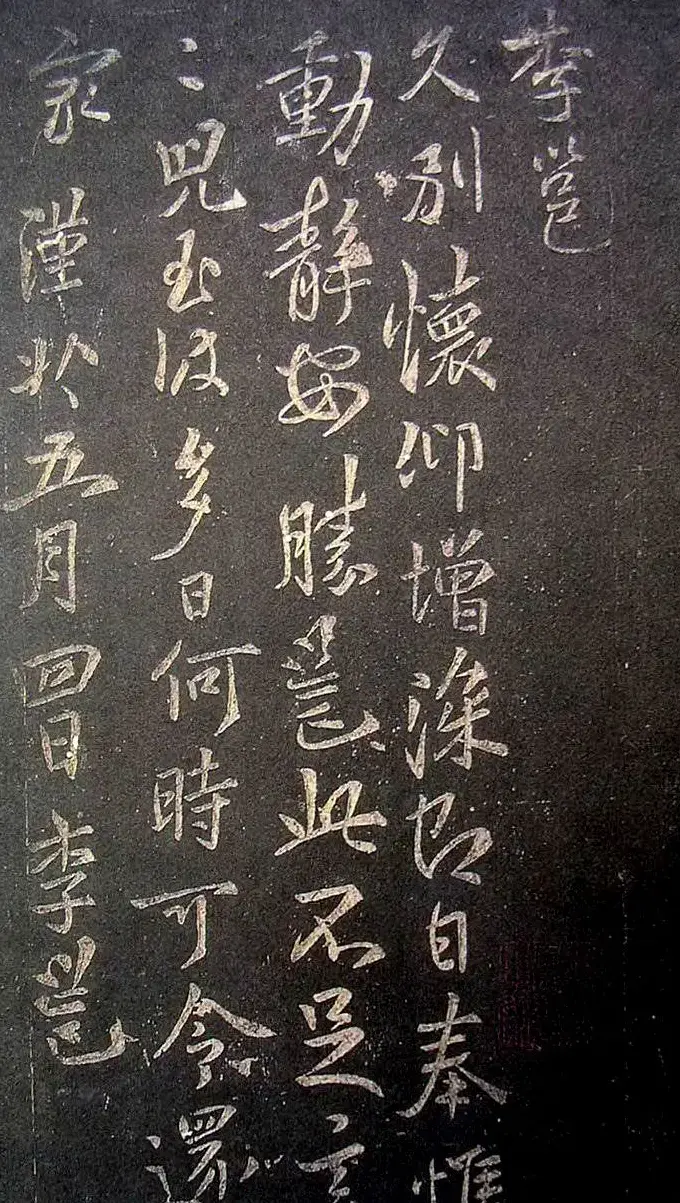 李邕
久別懷仰增深即日奉惟
動靜安勝邕此不足言
〻兒至彼多日何時可令還
家謹狀五月四日李邕